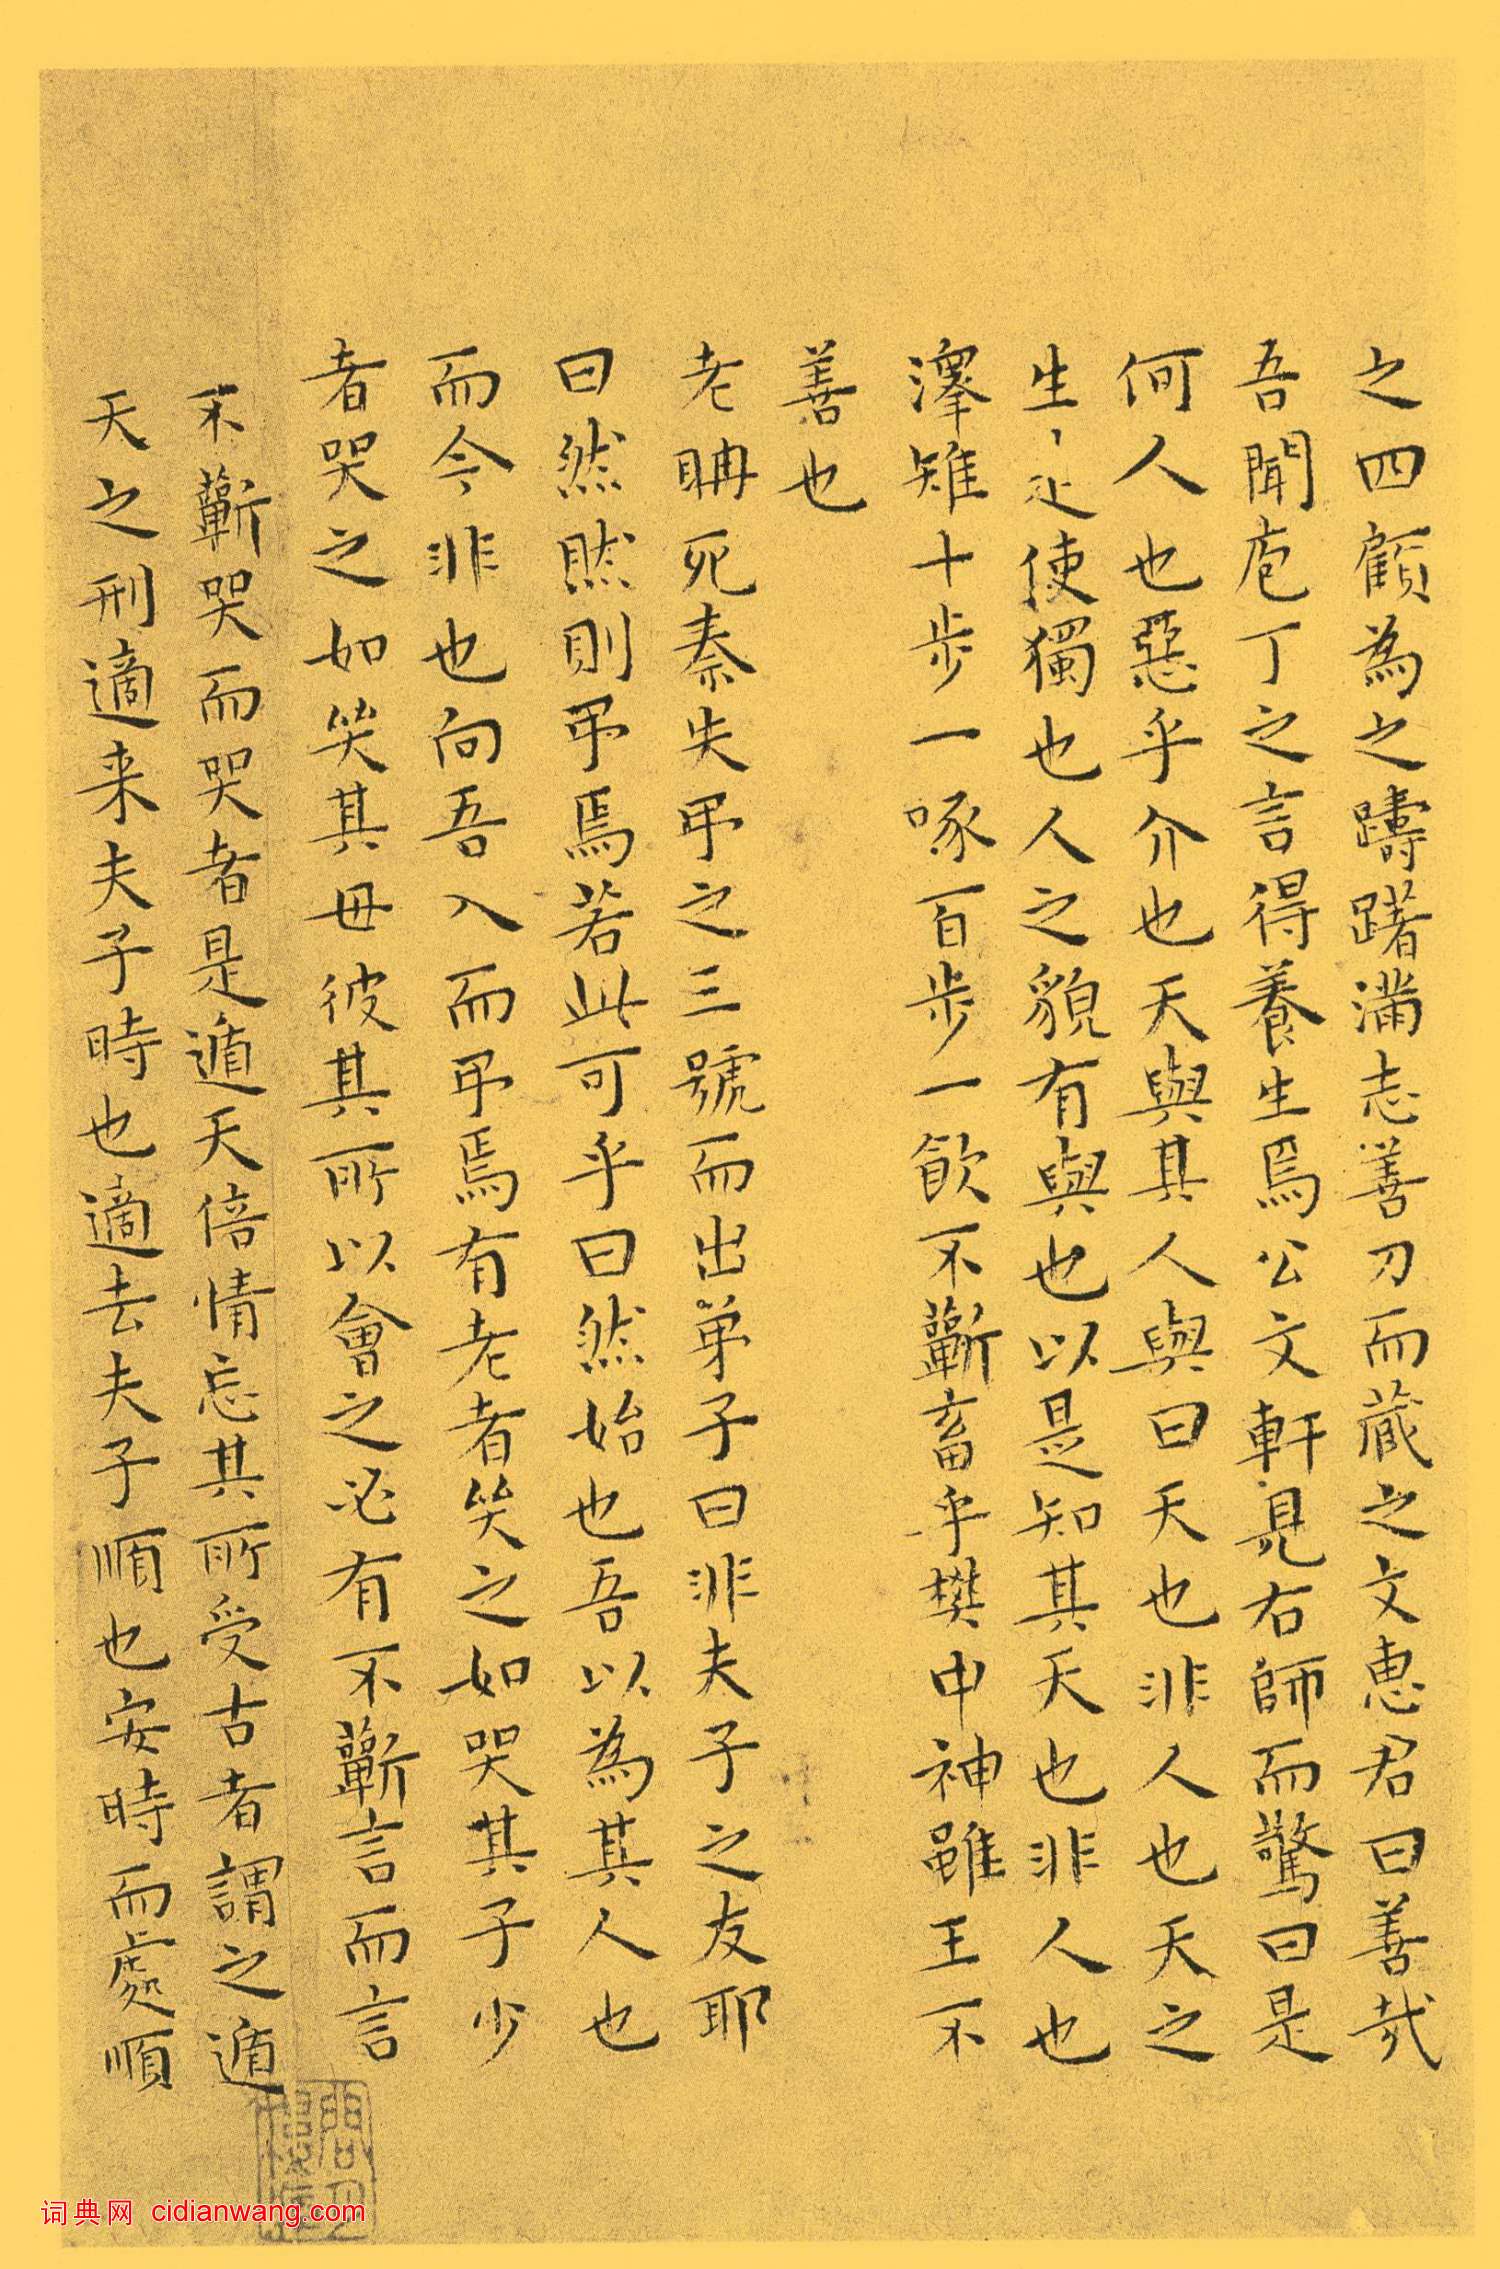 之四顧為之躊躇滿志善刀而藏之文惠君曰善哉
吾聞庖丁之言得養生焉公文軒見右師而驚曰是
何人也惡乎介也天與其人與曰天也非人也天之
生丶是使獨也人之貌有與也以是知其天也非人也
澤雉十步一啄百步一飲不蘄畜乎樊中神雖王不
善也
老聃死秦失弔之三號而出弟子曰非夫子之友耶
曰然然則弔焉若此可乎曰然始也吾以為其人也
而今非也向吾入而弔焉有老者哭之如哭其子少
者哭之如哭其母彼其所以會之必有不蘄言而言
不蘄哭而哭者是遁天倍情忘其所受古者謂之遁
天之刑適来夫子時也適去夫子順也安時而處順
词典网 cidianwang.com